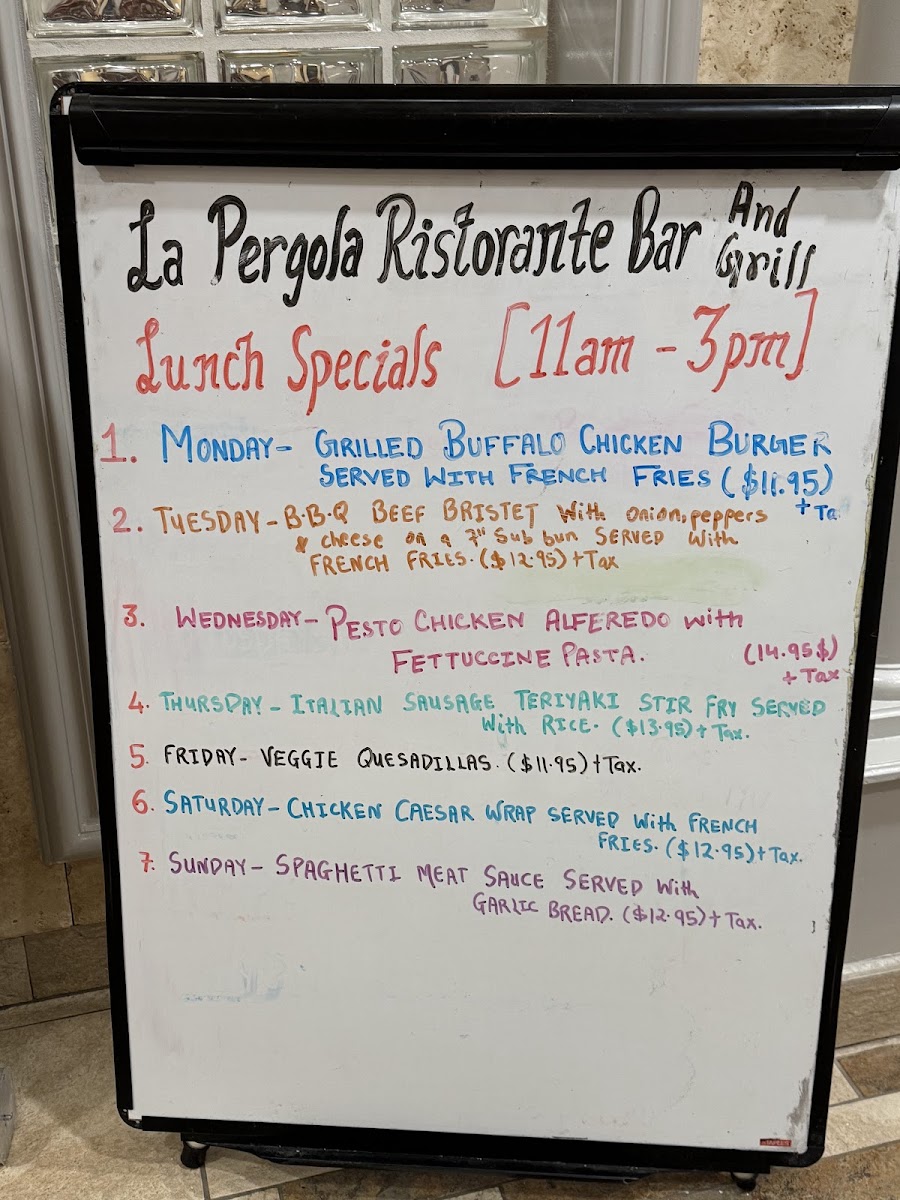 La Pergola Ristorante Bar And Grill
Lunch Specials [11am - 3pm]
1. MONDAY- GRILLED BUFFALO CHICKEN BURGER
SERVED WITH FRENCH FRIES ($11.95)
+ Ta
2. TUESDAY- B.B.Q BEEF BRISTET With onion, peppers
& cheese on a 7" Sub bun SERVED With
FRENCH FRIES. ($12.95) + Tax
3. WEDNESDAY- PESTO CHICKEN ALFEREDO with
FETTUCCINE PASTA. (14.95$)
+ Tax
4. THURSDAY - ITALIAN SAUSAGE TERIYAKI STIR FRY SERVED
With RICE. ($13.95) + Tax.
5. FRIDAY- VEGGIE QUESADILLAS. ($11.95) + Tax.
6. SATURDAY- CHICKEN CAESAR WRAP SERVED With FRENCH
FRIES. ($12.95) + Tax.
7. SUNDAY- SPAGHETTI MEAT SAUCE SERVED With
GARLIC BREAD. ($12.95) + Tax.